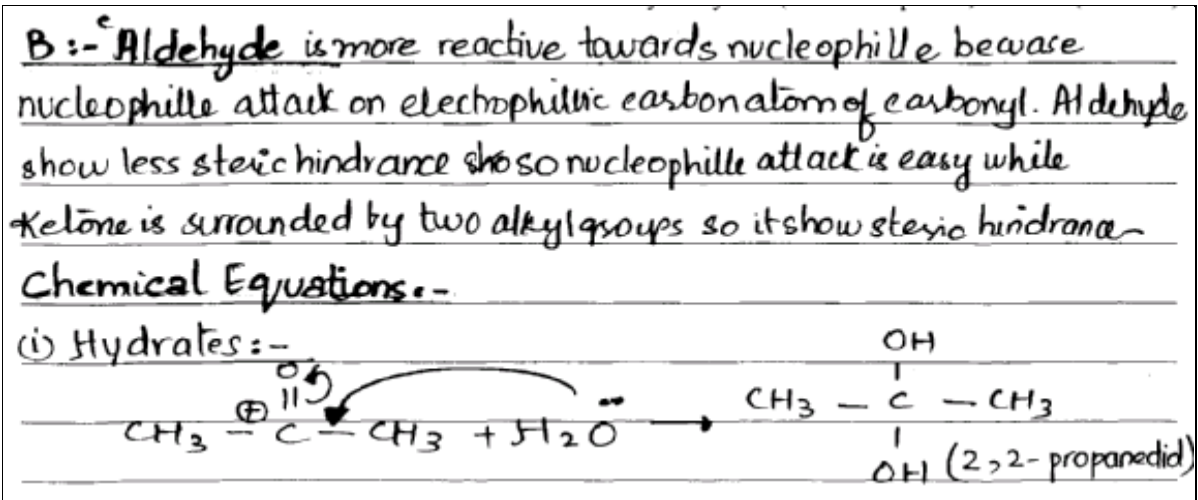 B :- Aldehyde is more reactive towards nucleophille becuase
nucleophille attack on electrophillic carbon atom of carbonyl. Aldehyde
show less steric hindrance sho so nucleophille attack is easy while
Ketone is surrounded by two alkyl groups so it show steric hindrance
Chemical Equations :-
(i) Hydrates :-
OH
O
CH3 – C – CH3
⊕ ||
CH3 – C – CH3 + H2Ö →
OH (2,2-propanediol)